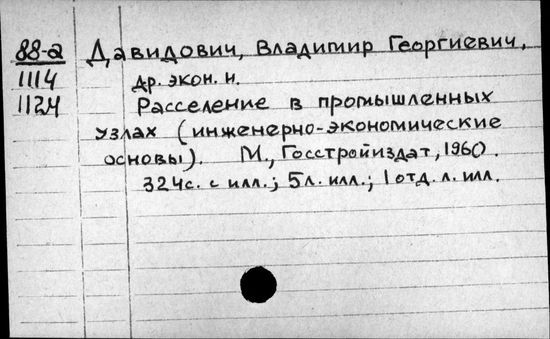 88-а Давидович, Владимир Георгиевич,
1114 др. экон. н.
1124 Расселение в промышленных
узлах (инженерно-экономические
основы). М., Госстройиздат, 1960.
324с. с илл.; 5л. илл.; 1 отд. л. илл.